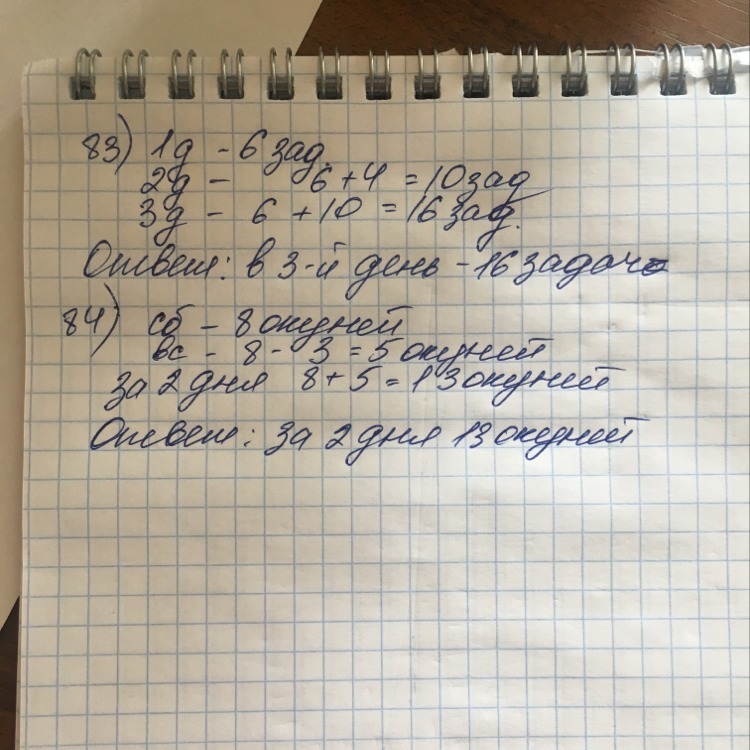 83) 1д - 6 зад.
2д - 6 + 4 = 10 зад
3д - 6 + 10 = 16 зад.
Ответ: в 3-й день - 16 задач
84) сб - 8 окуней
вс - 8 - 3 = 5 окуней
за 2 дня 8 + 5 = 13 окуней
Ответ: за 2 дня 13 окуней